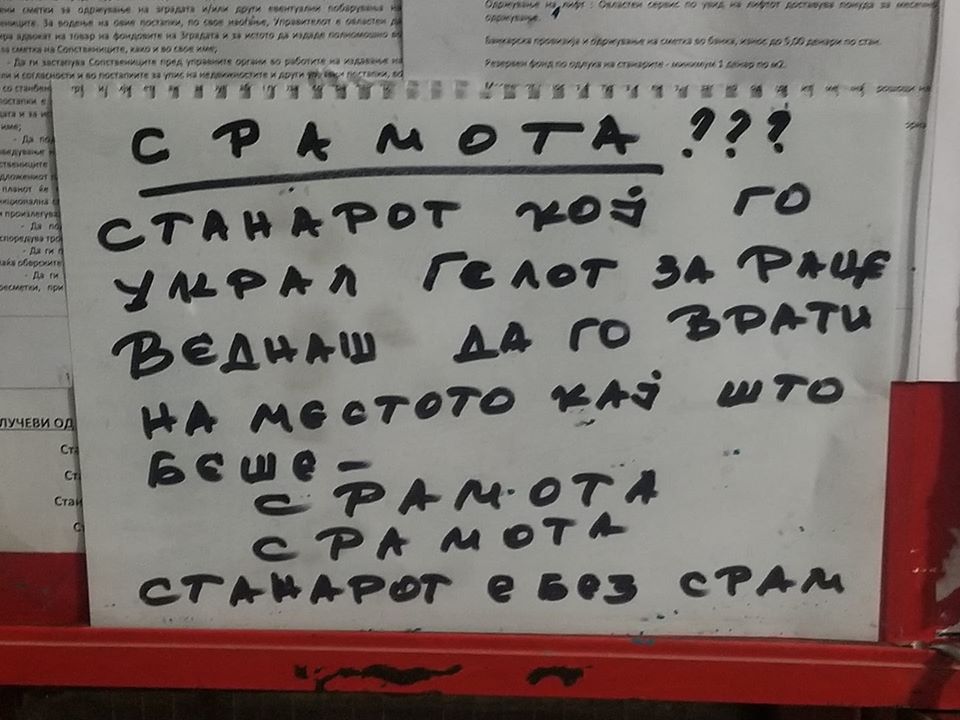 ени сметки за одржување на зградата и/или други евентуални побарувања на
ира адвокат на товар на фондовите на Зградата и за истото да издаде полномошно во
за сметка на Сопствениците, како и во свое име;
- Да ги застапува Сопствениците пред управните органи во работите на издавање на
ли и согласности и во постапките за упис на недвижностите и други управни постапки, во
Одржување на лифт : Овластен сервис по увид на лифтот доставува понуда за месечно
одржување.
Банкарска провизија и одржување на сметка во банка, износ до 5,00 денари по стан.
Резервен фонд по одлука на станарите - минимум 1 денар по м2.
С Р А М О Т А ???
СТАНАРОТ КОЈ ГО
УКРАЛ ГЕЛОТ ЗА РАЦЕ
ВЕДНАШ ДА ГО ВРАТИ
НА МЕСТОТО КАЈ ШТО
БЕШЕ -
С Р А М О Т А
С Р А М О Т А
СТАНАРОТ Е БЕЗ СРАМ
ЛУЧЕВИ ОД